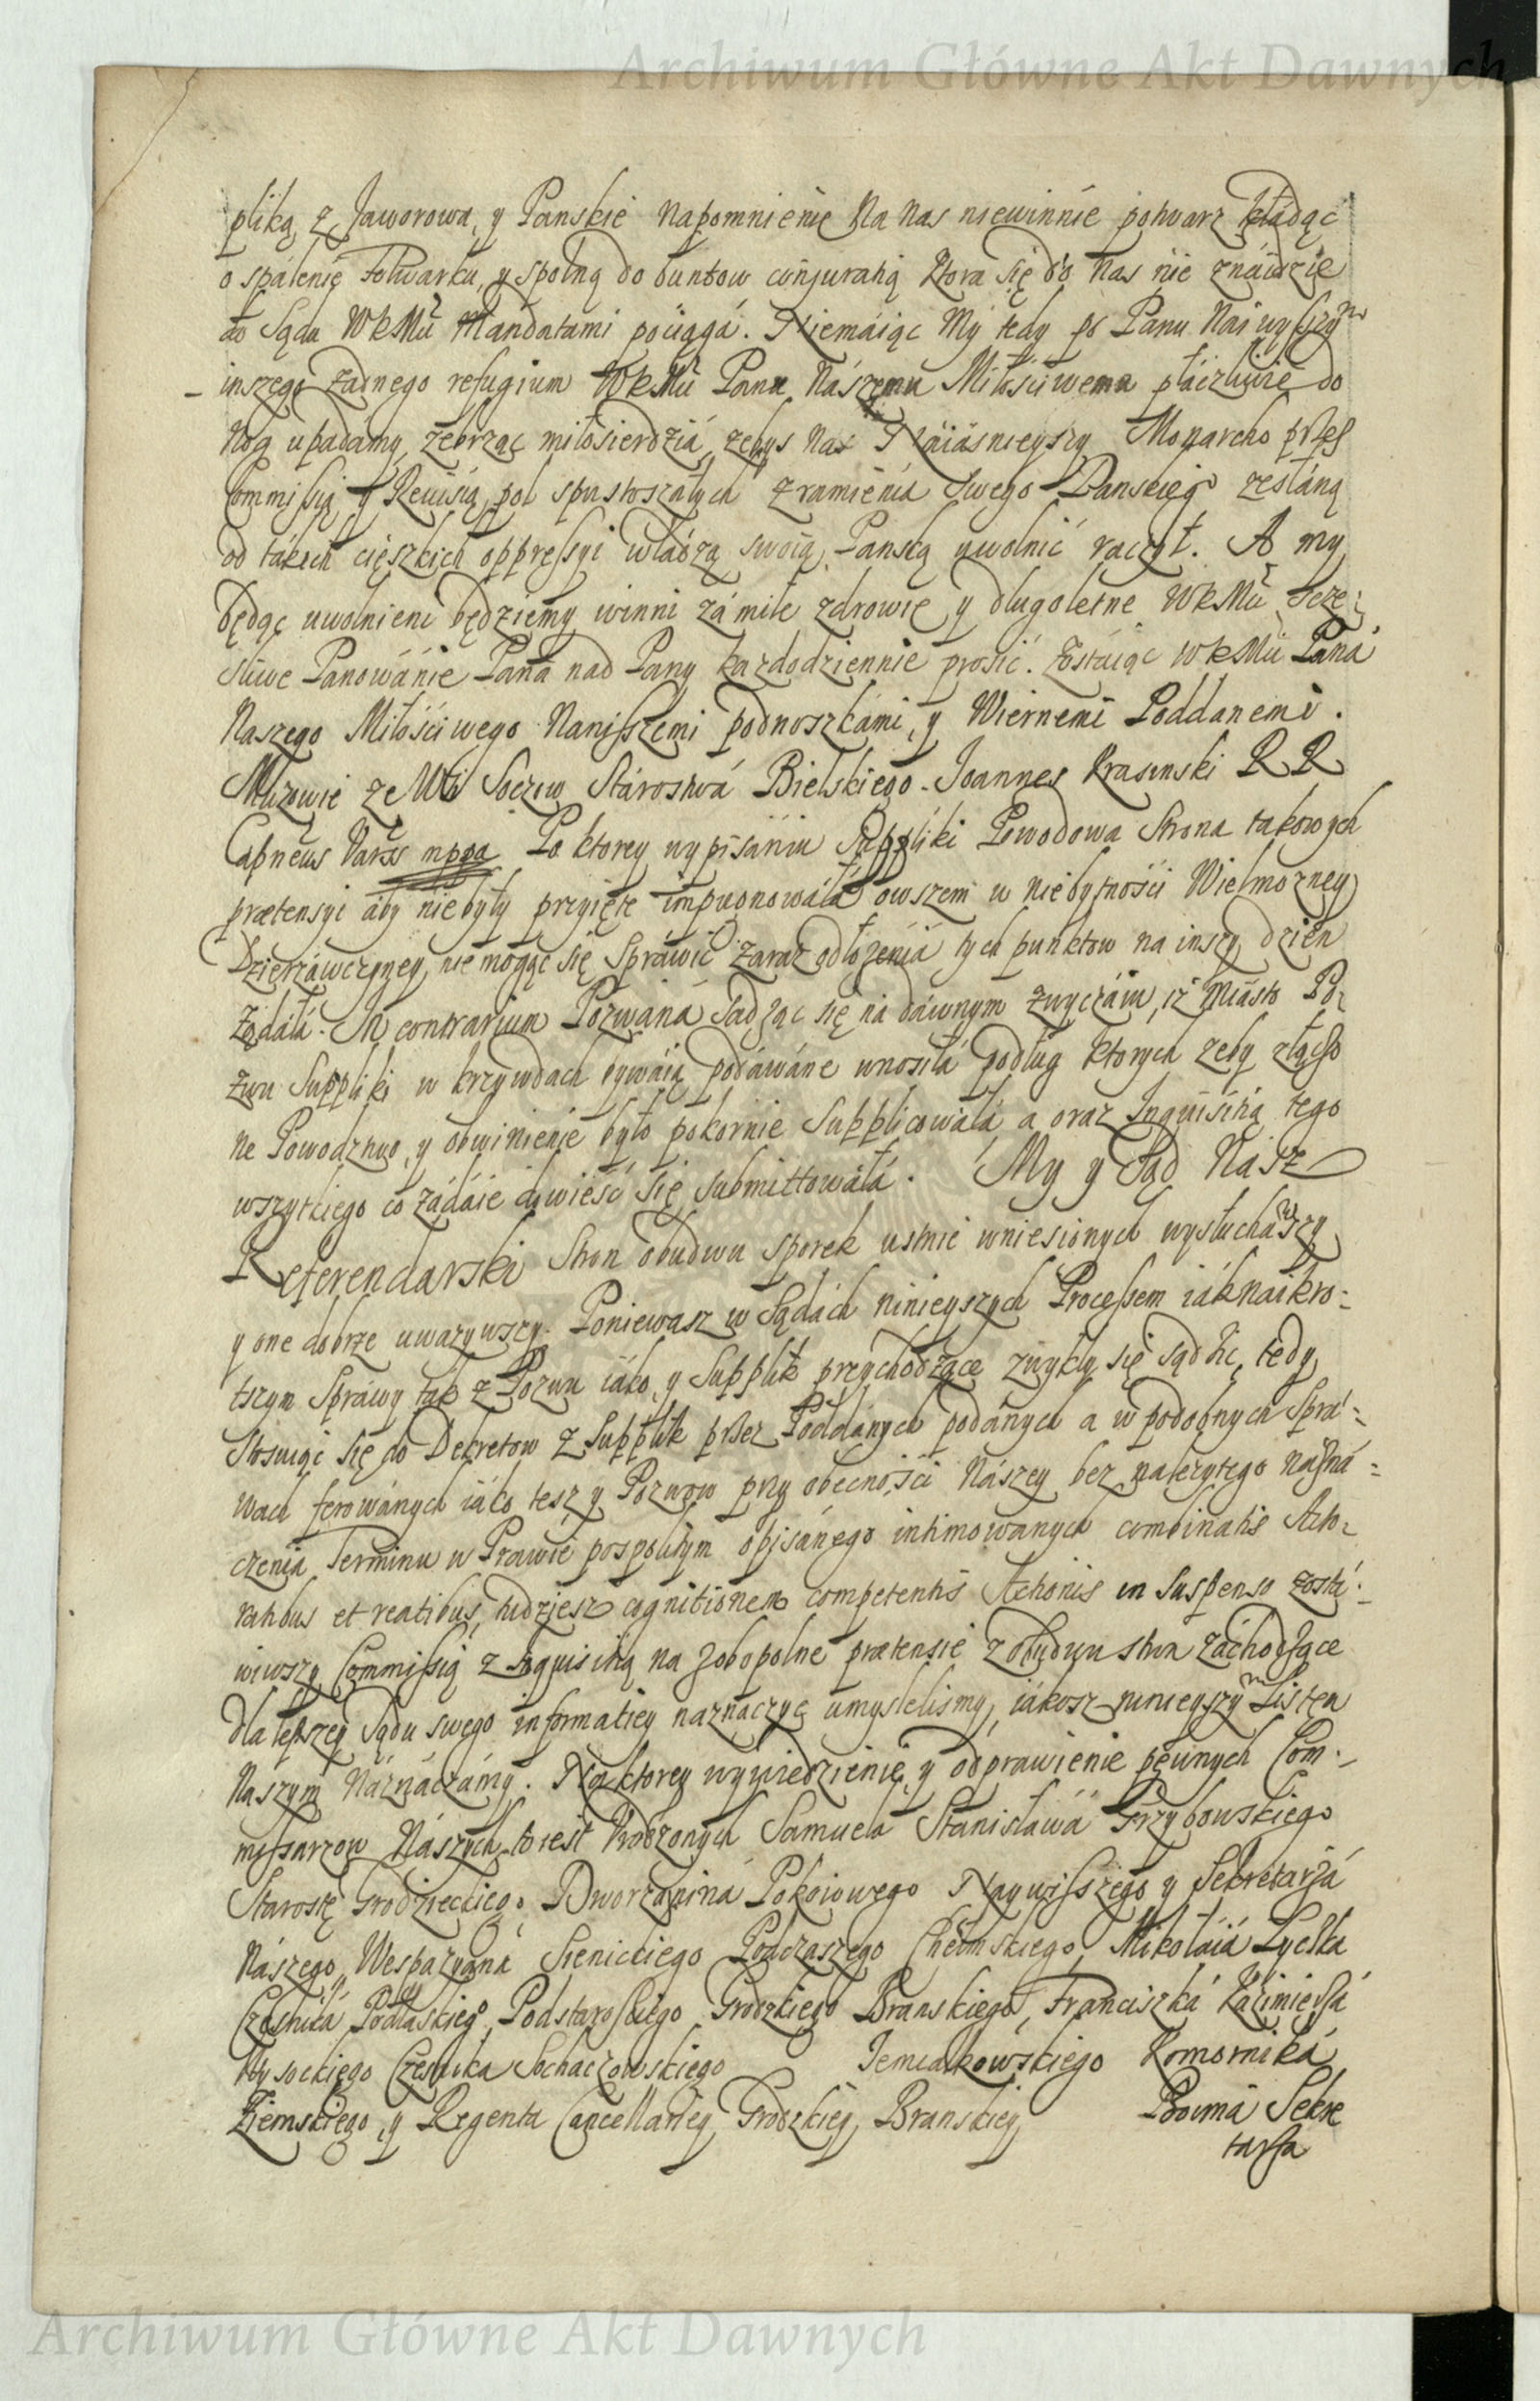 Archiwum Główne Akt Dawnych
pliką z Jaworowa, y Panskie napomnienie na nas niewinnie potwarz kładąc
o spalenię Folwarku, y spolną do buntow conjuratią ktora się do nas nie znáidzie
do Sądu WKMći Mandatami pociągá. Niemáiąc my tedy po Panu Naiwyszym
inszego żadnego refugium WKMći Panu Nászemu Miłościwemu płáczliwie do
nog upadamy, zebrząc miłosierdziá, zebys nas Náiásnieyszy Monarcho przez
Commissią y Rewisią pol spustoszałych z ramieniá swego Panskiego zesłáną
od tákich cięszkich oppressyi władzą swoią Panską uwolnić raczył. A my
będąc uwolnieni będziemy winni zá miłe zdrowie y długoletne WKMći szczę:
śliwe Panowánie Pana nad Pany kazdodziennie prosić. Zostáiąc WKMći Páná
Naszego Miłościwego Naniszszemi podnoszkámi, y Wiernemi Poddanemi.
Stárostwá Bielskiego. Joannes Krasinski R R
mpga Po ktorey wypisániu Suppliki Powodowa Strona takowych
prætensyi áby niebyły przyięte impugnowáłá owszem w niebytności Wielmozney
Dzierzáwczyney, nie mogąc się spráwić zaraz odłożeniá tych punktow na inszy dzien
żądáłá. In contrarium Pozwáná sadząc się ná dáwnym zwyczáiu, iż miásto Po:
zwu Suppliki w krzywdach bywáią podáwáne wnosiłá podług ktorych zeby złącſo
ne Powodztwo, y obwinienie było pokornie supplicowáłá, a oraz Inquisitią tego
wszytkiego co żádáie dowieść się submittowáłá. My y Sąd Nász
Referendarski Stron obudwu sporek ustnie wniesionych wysłuchawszy
y one dobrze uwazywszy. Poniewasz w Sądách ninieyszych Processem iák naikro:
tszym Spráwy ták z Pozwu iáko y Supplik przychodzące zwykły się sądzić, tedy
stosuiąc się do Dekretow z Supplik przez Poddánych podánych a w podobnych Spra:
wach ferowánych iáko tesz y Pozwow przy obecności Nászey bez należytego názná:
czenia Terminu w Prawie pospolitym opisánego intimowanych combinatis Acto:
ratibus et reatibus, tudziesz cognitionem competentis Actionis in suspenso zostá:
wiwszy, Commissią z Inquisitią na zobopolne prætensie z obudwu stron záchodzące
dla lepszey Sądu swego informatiey naznaczyć umyslelismy, iákosz ninieyszym Listem
Naszym Náznaczámy. Na ktorey wywiedzienie, y odprawienie pewnych Com:
missarzow Nászych, to iest Urodzonych Samuela Stanisławá Grzybowskiego
Starostę Grodzieckiego, Dworzániná Pokoiowego Naywiszszego y Sekretarzá
Nászego, Wespazyaná Sienickiego Podczaszego Chełmskiego, Mikołáiá Łyczka
Cześniká Podlaskiego, Podstarosciego Grodzkiego Branskiego, Franciszká Kazimierzá
Wysockiego Czesnika Sochaczowskiego Jemiałkowskiego Komorniká
Ziemskiego, y Regenta Cancellariey Grodzkiey Branskiey Sekre
tarza
Archiwum Główne Akt Dawnych